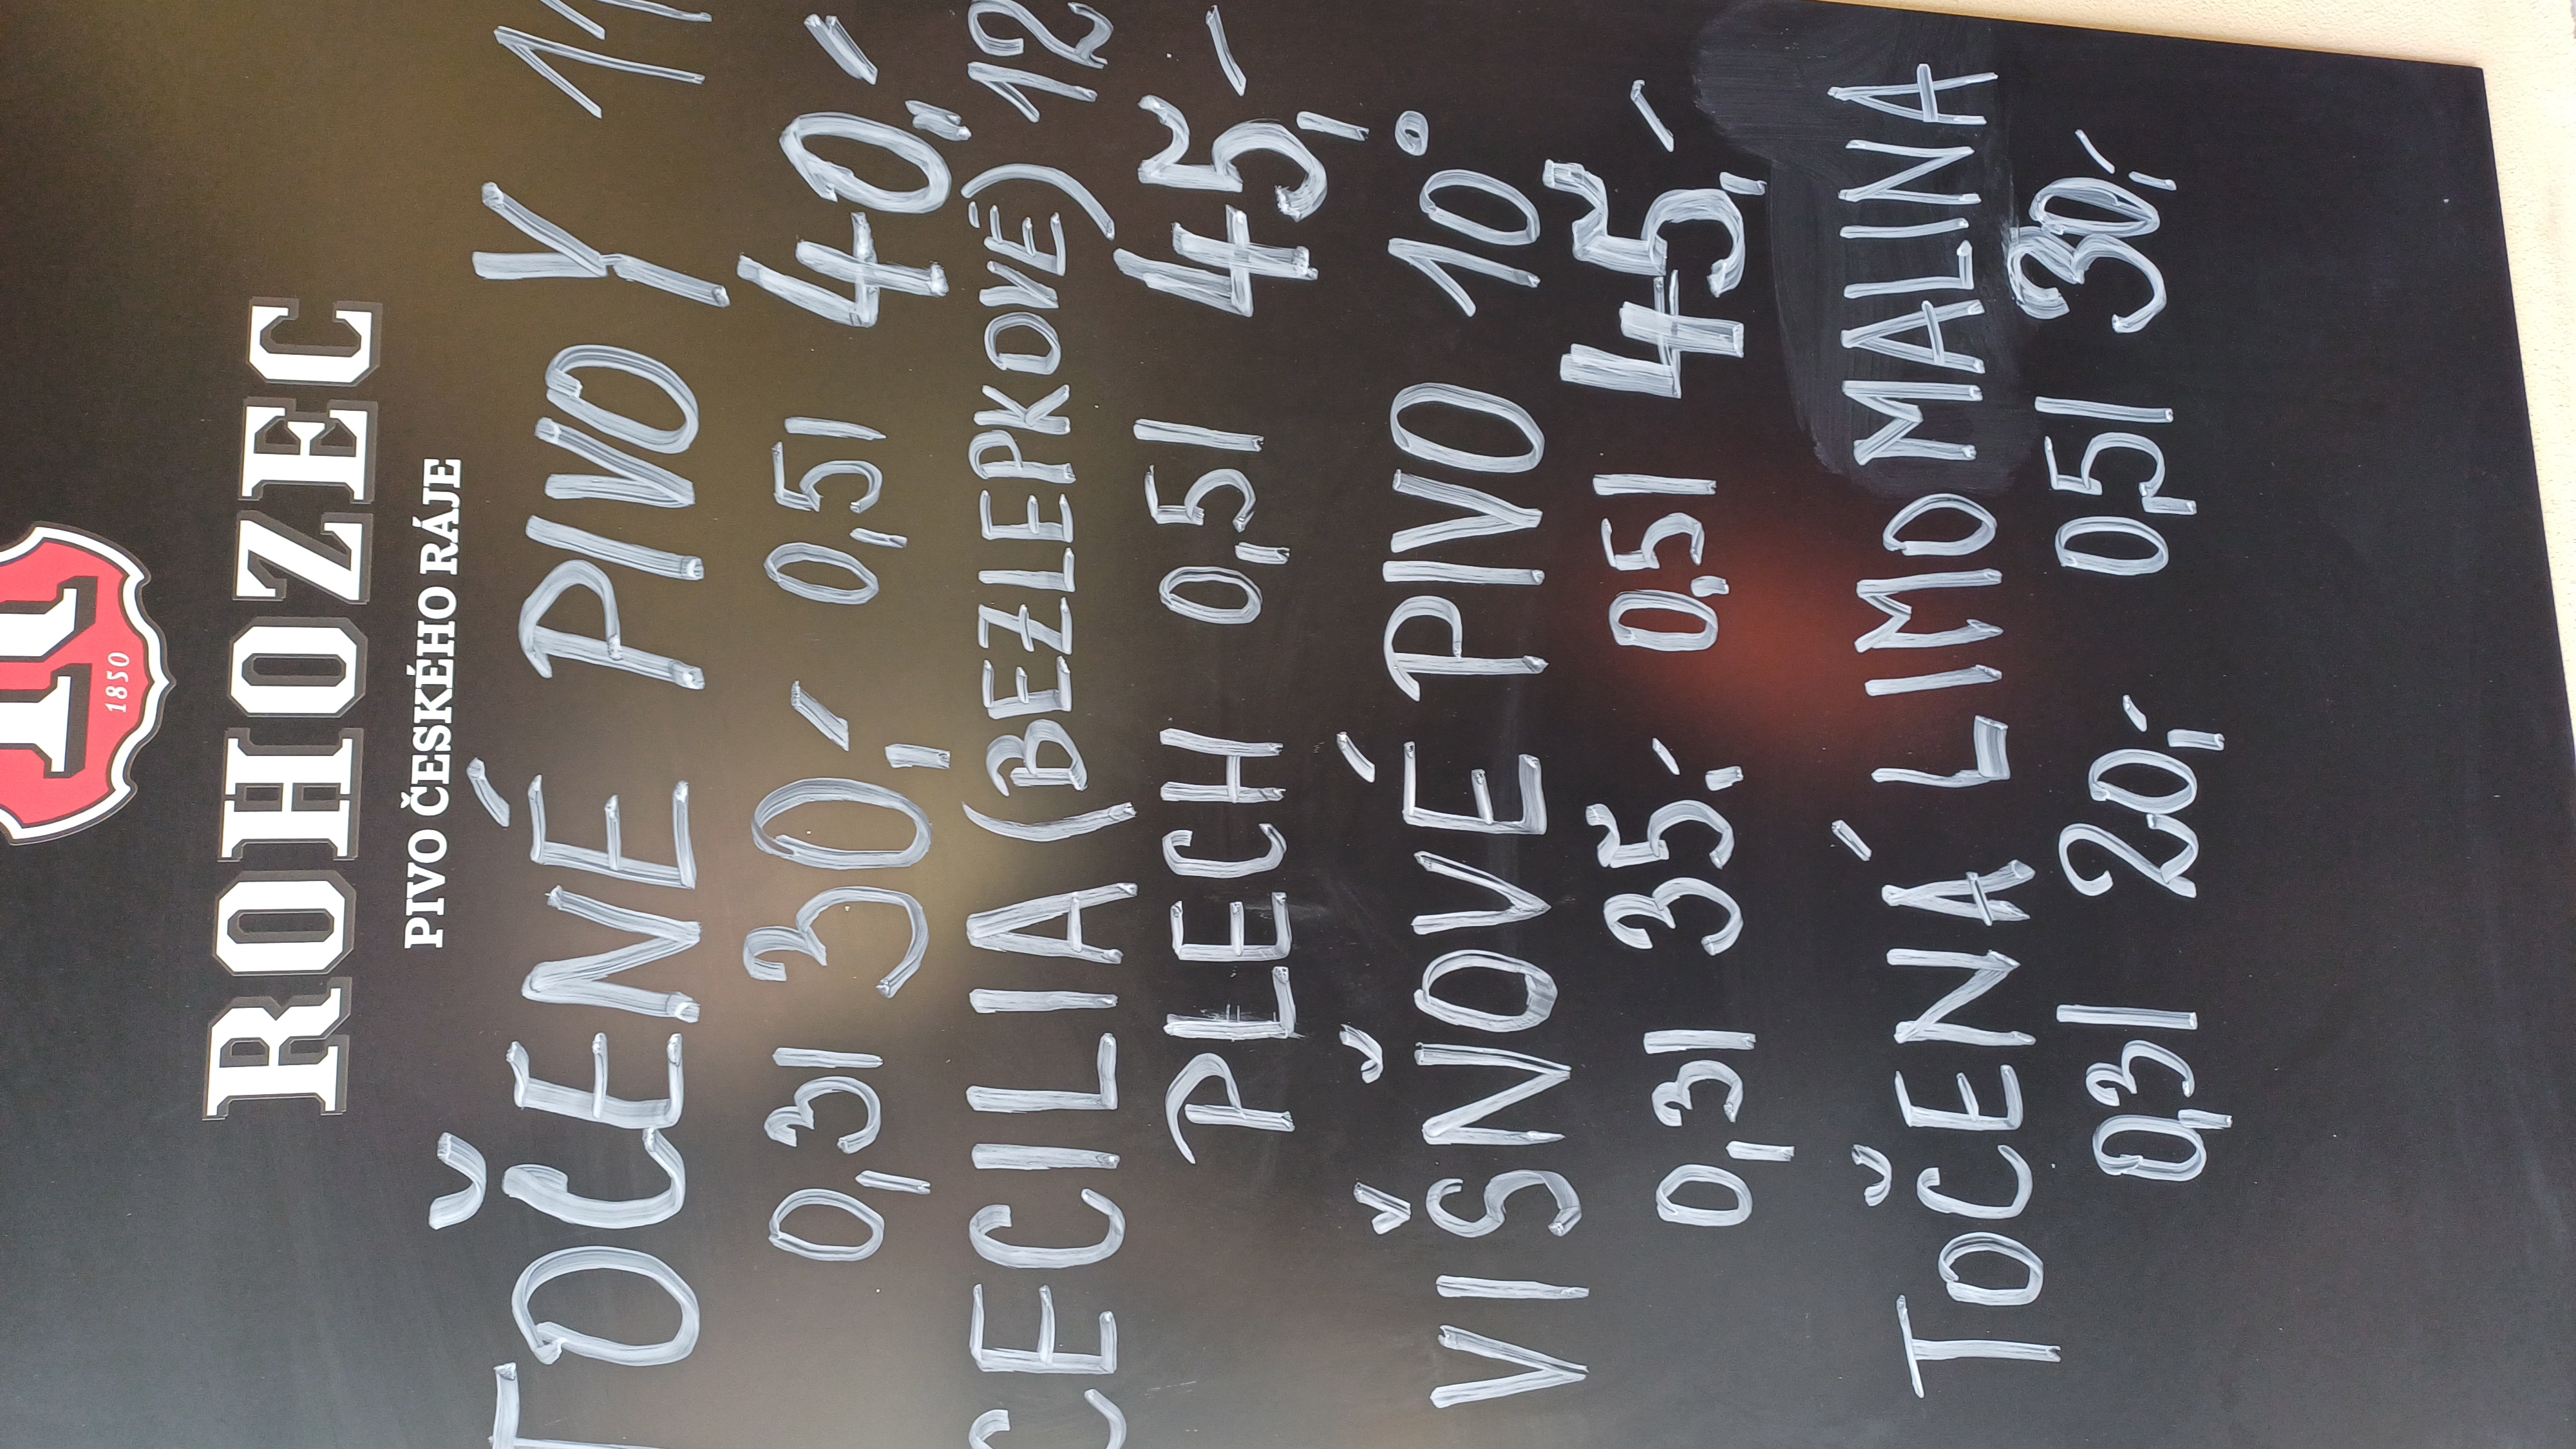 1850
ROHOZEC
PIVO ČESKÉHO RÁJE
TOČENÉ PIVO Y 11
0,3l 30,- 0,5l 40,-
CECILIA (BEZLEPKOVÉ) 12
PLECH 0,5l 45,-
VIŠŇOVÉ PIVO 10°
0,3l 35,- 0,5l 45,-
TOČENÁ LIMO MALINA
0,3l 20,- 0,5l 30,-